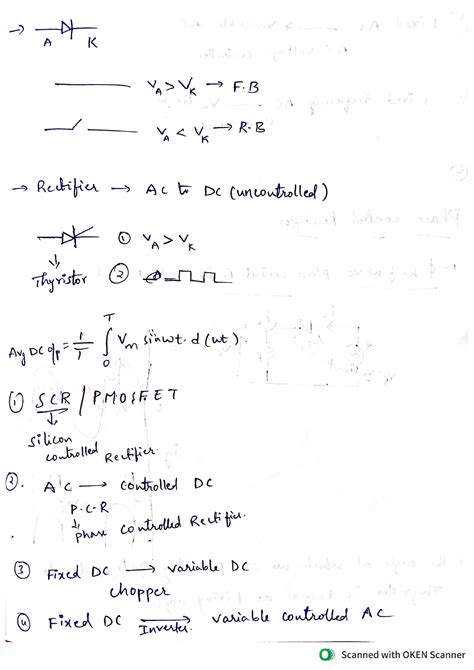 →
A K
V_A > V_K → F.B
V_A < V_K → R.B
→ Rectifier → AC to DC (uncontrolled)
① V_A > V_K
Thyristor ②
Avg DC o/p = 1/T ∫₀ᵀ V_m sinωt. d(ωt)
① SCR / PMOSFET
silicon
controlled Rectifier.
②. AC → controlled DC
P.C.R
phase controlled Rectifier.
③ Fixed DC → variable DC
chopper
④ Fixed DC → variable controlled AC
Inverter.
Scanned with OKEN Scanner